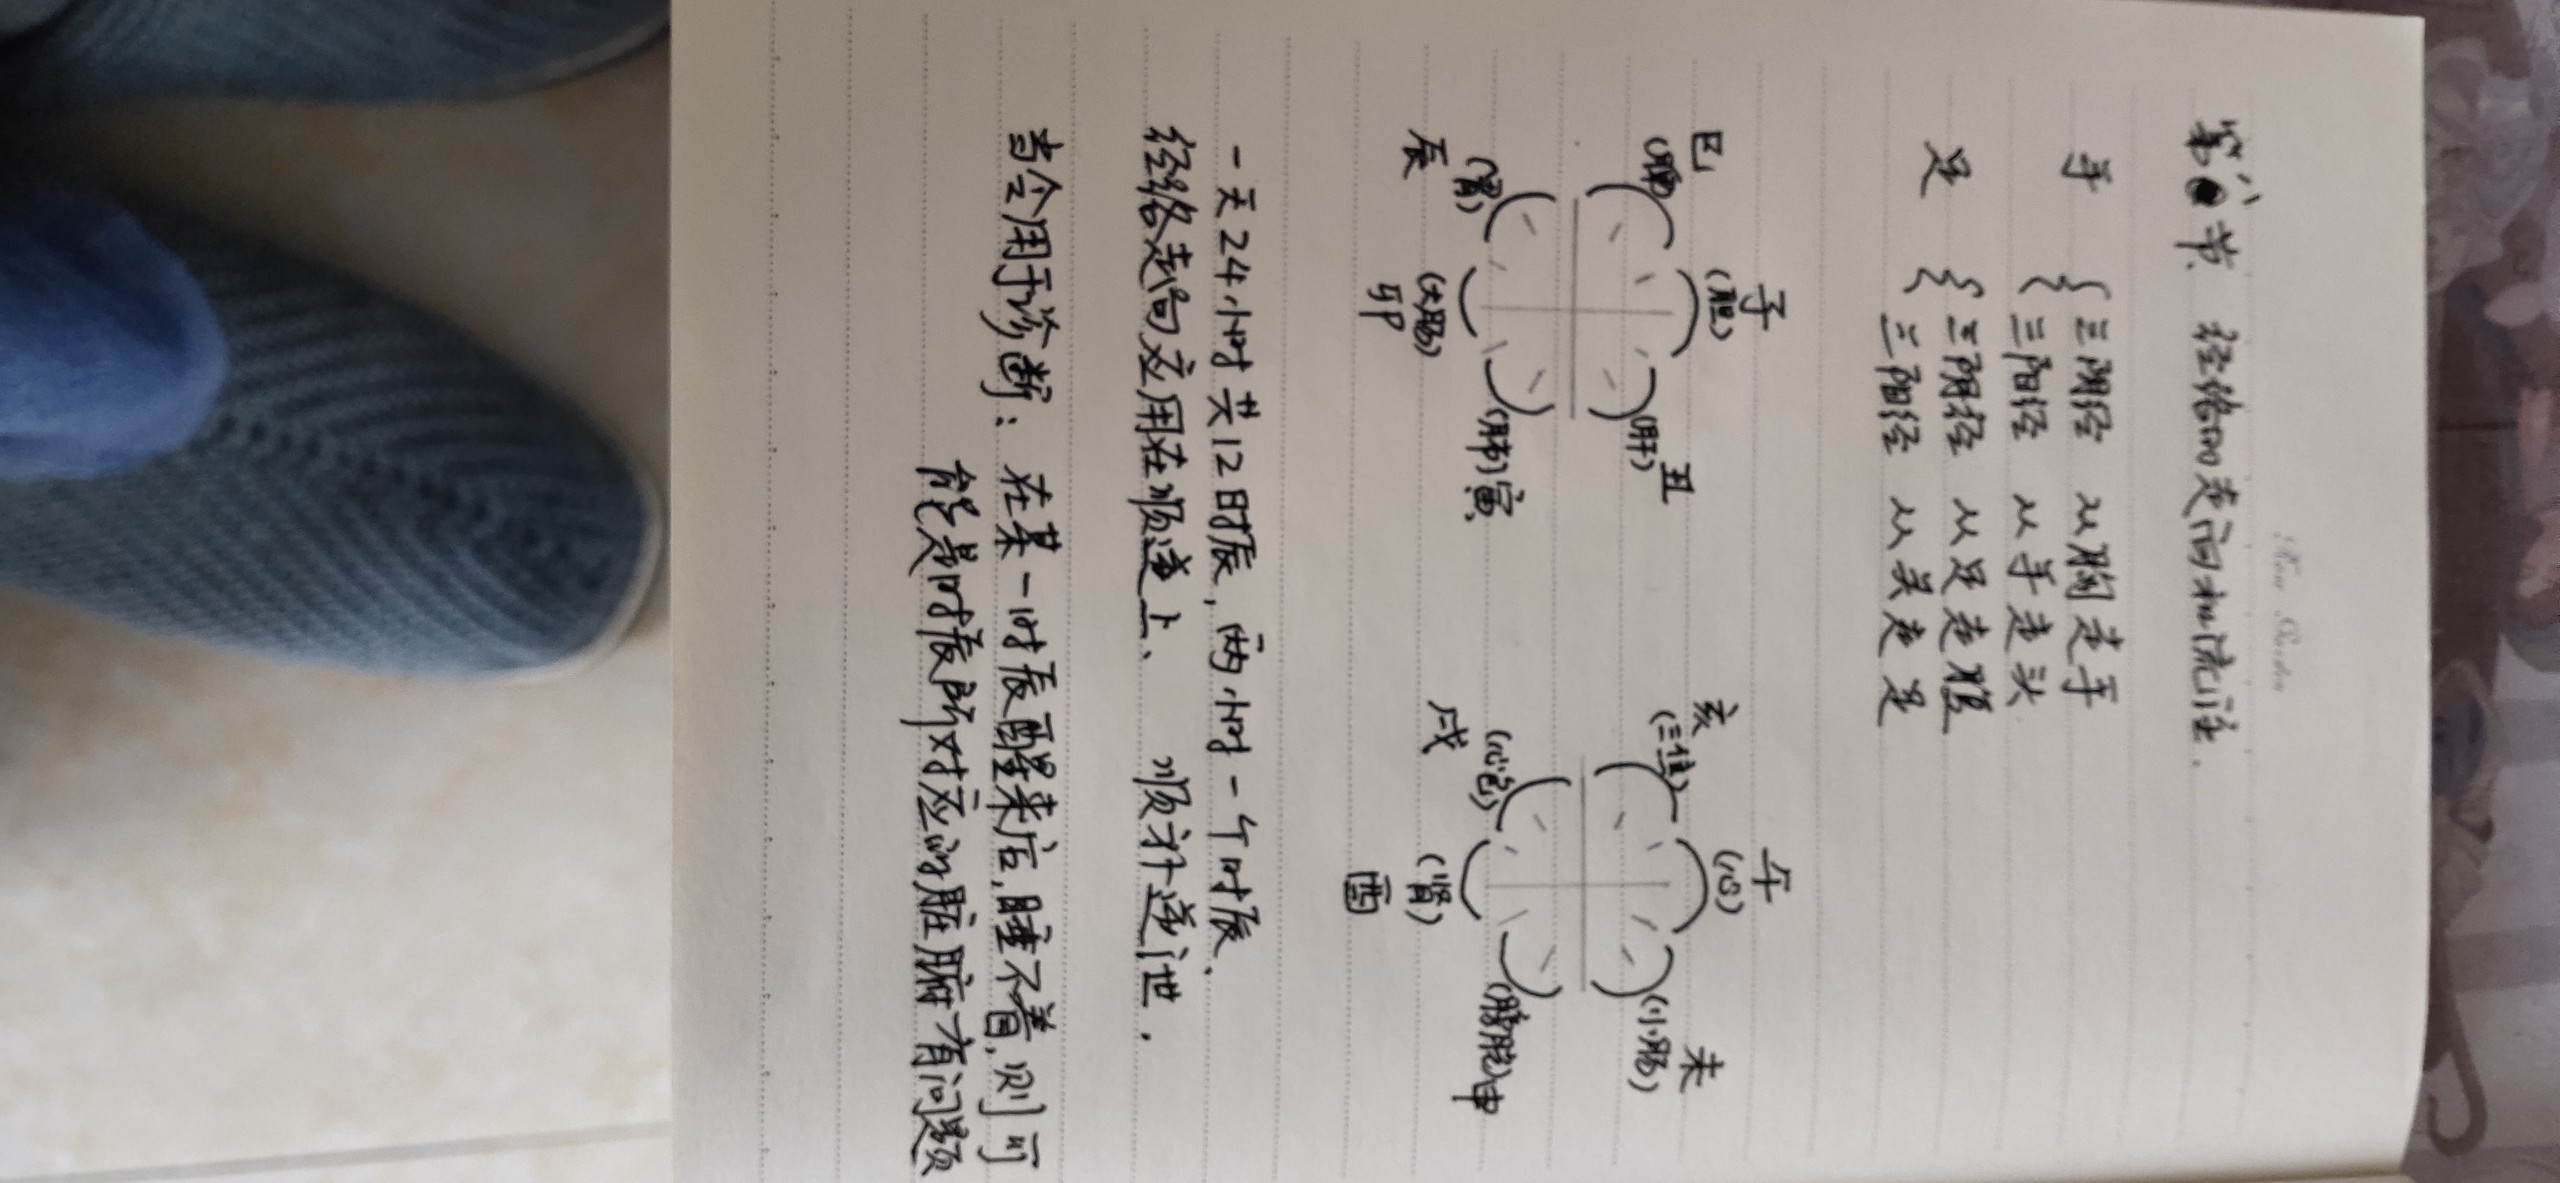 第三节、经络的走向和流注.
手 { 三阴经 从胸走手
三阳经 从手走头
足 { 三阴经 从足走腹
三阳经 从头走足
子
(胆)
巳
(脾)
(肝)
丑
(胃)
辰
(肺)寅
(大肠)
卯
午
(心)
亥
(三焦)
未
(小肠)
(心包)
戌
(膀胱)申
(肾)
酉
一天24小时共12时辰,两小时一个时辰.
经络走向应用在顺逆上、 顺补逆泄.
当令用于诊断: 在某一时辰醒来后,睡不着,则可
能是时辰所对应的脏腑有问题